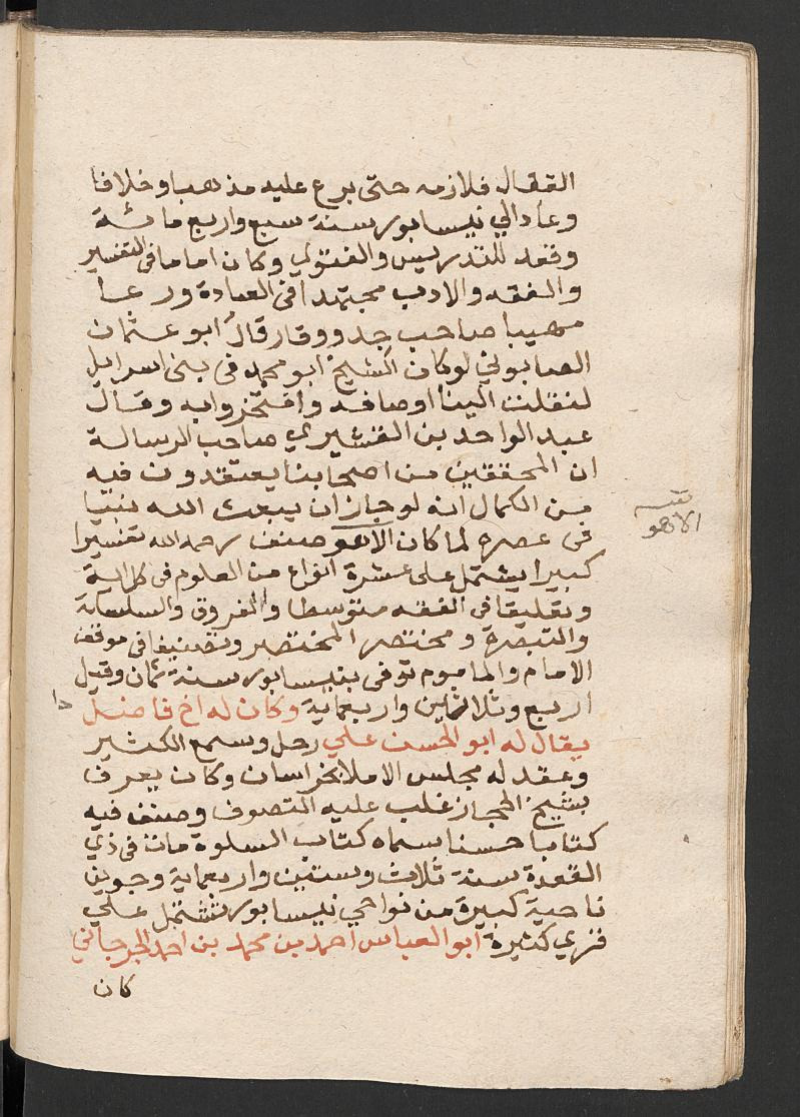 القفال فلازمه حتى برع عليه مذهبا وخلافا
وعاد الي نيسابور سنة سبع واربع مائة
وقعد للتدريس والفتوي وكان اماما فى التفسير
والفقه والادب مجتهدا فى العبادة ورعا
مهيبا صاحب جد ووقار قال ابو عثمان
الصابوني لو كان الشيخ ابو محمد فى بنى اسرايل
لنقلت الينا اوصافه وافتخروا به وقال
عبد الواحد بن القشيري صاحب الرسالة
ان المحققين من اصحابنا يعتقدون فيه
من الكمال انه لو جاز ان يبعث الله نبيا
فى عصره لما كان الا هو صنف رحمه الله تفسيرا
كبيرا يشتمل على عشرة انواع من العلوم فى كل اية
وتعليقا فى الفقه متوسطا والفروق والسلسلة
والتبصرة ومختصر المختصر وتصنيفا فى موقف
الامام والماموم توفى بنيسابور سنة ثمان وقيل
اربع وثلاثين واربعماية وكان له اخ فاضل
يقال له ابو الحسن علي رحل وسمع الكثير
وعقد له مجلس الاملا بخراسان وكان يعرف
بشيخ الحجاز غلب عليه التصوف وصنف فيه
كتابا حسنا سماه كتاب السلوة مات فى ذي
القعدة سنة ثلاث وستين واربعماية وجوين
ناحية كبيرة من نواحي نيسابور تشتمل علي
قري كثيرة ابو العباس احمد بن محمد بن احمد الجرجاني
كان
الا هو